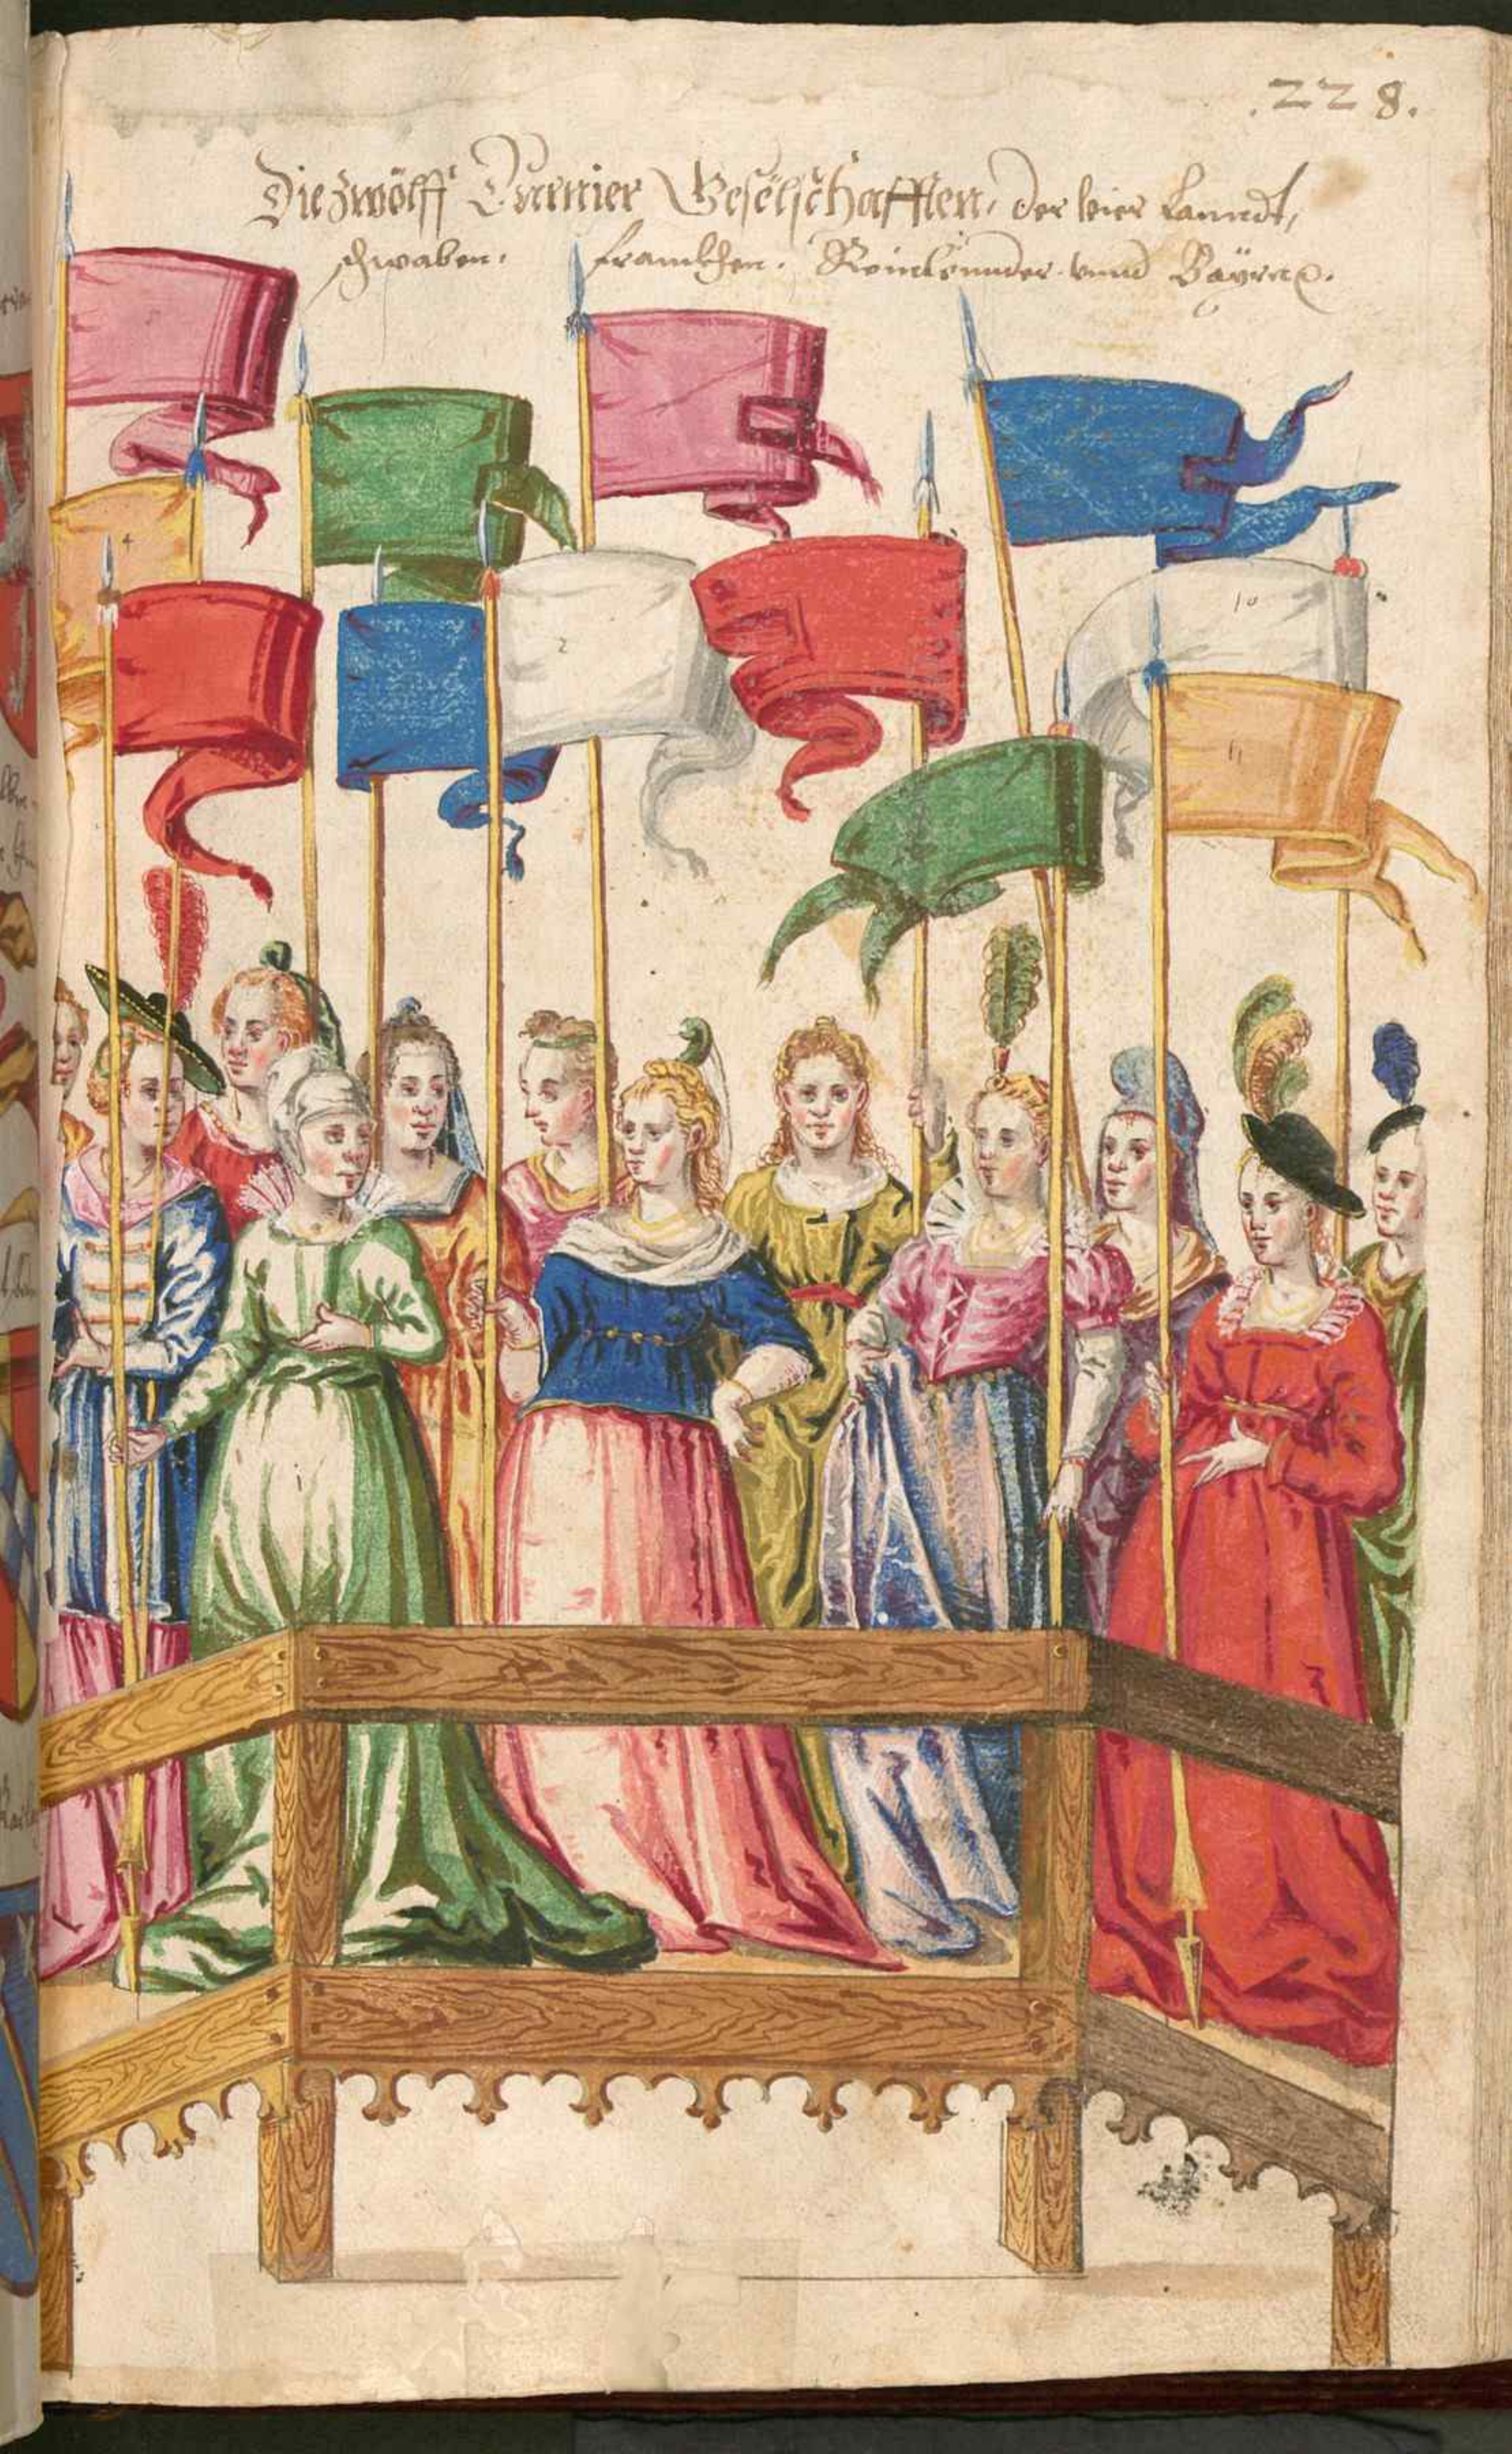 228.
Die zwölff Turnier Geselschafften, der vier Lanndt,
schwaben. franckhen. Reinlennder vnnd Bayrn.
4
2
10
11